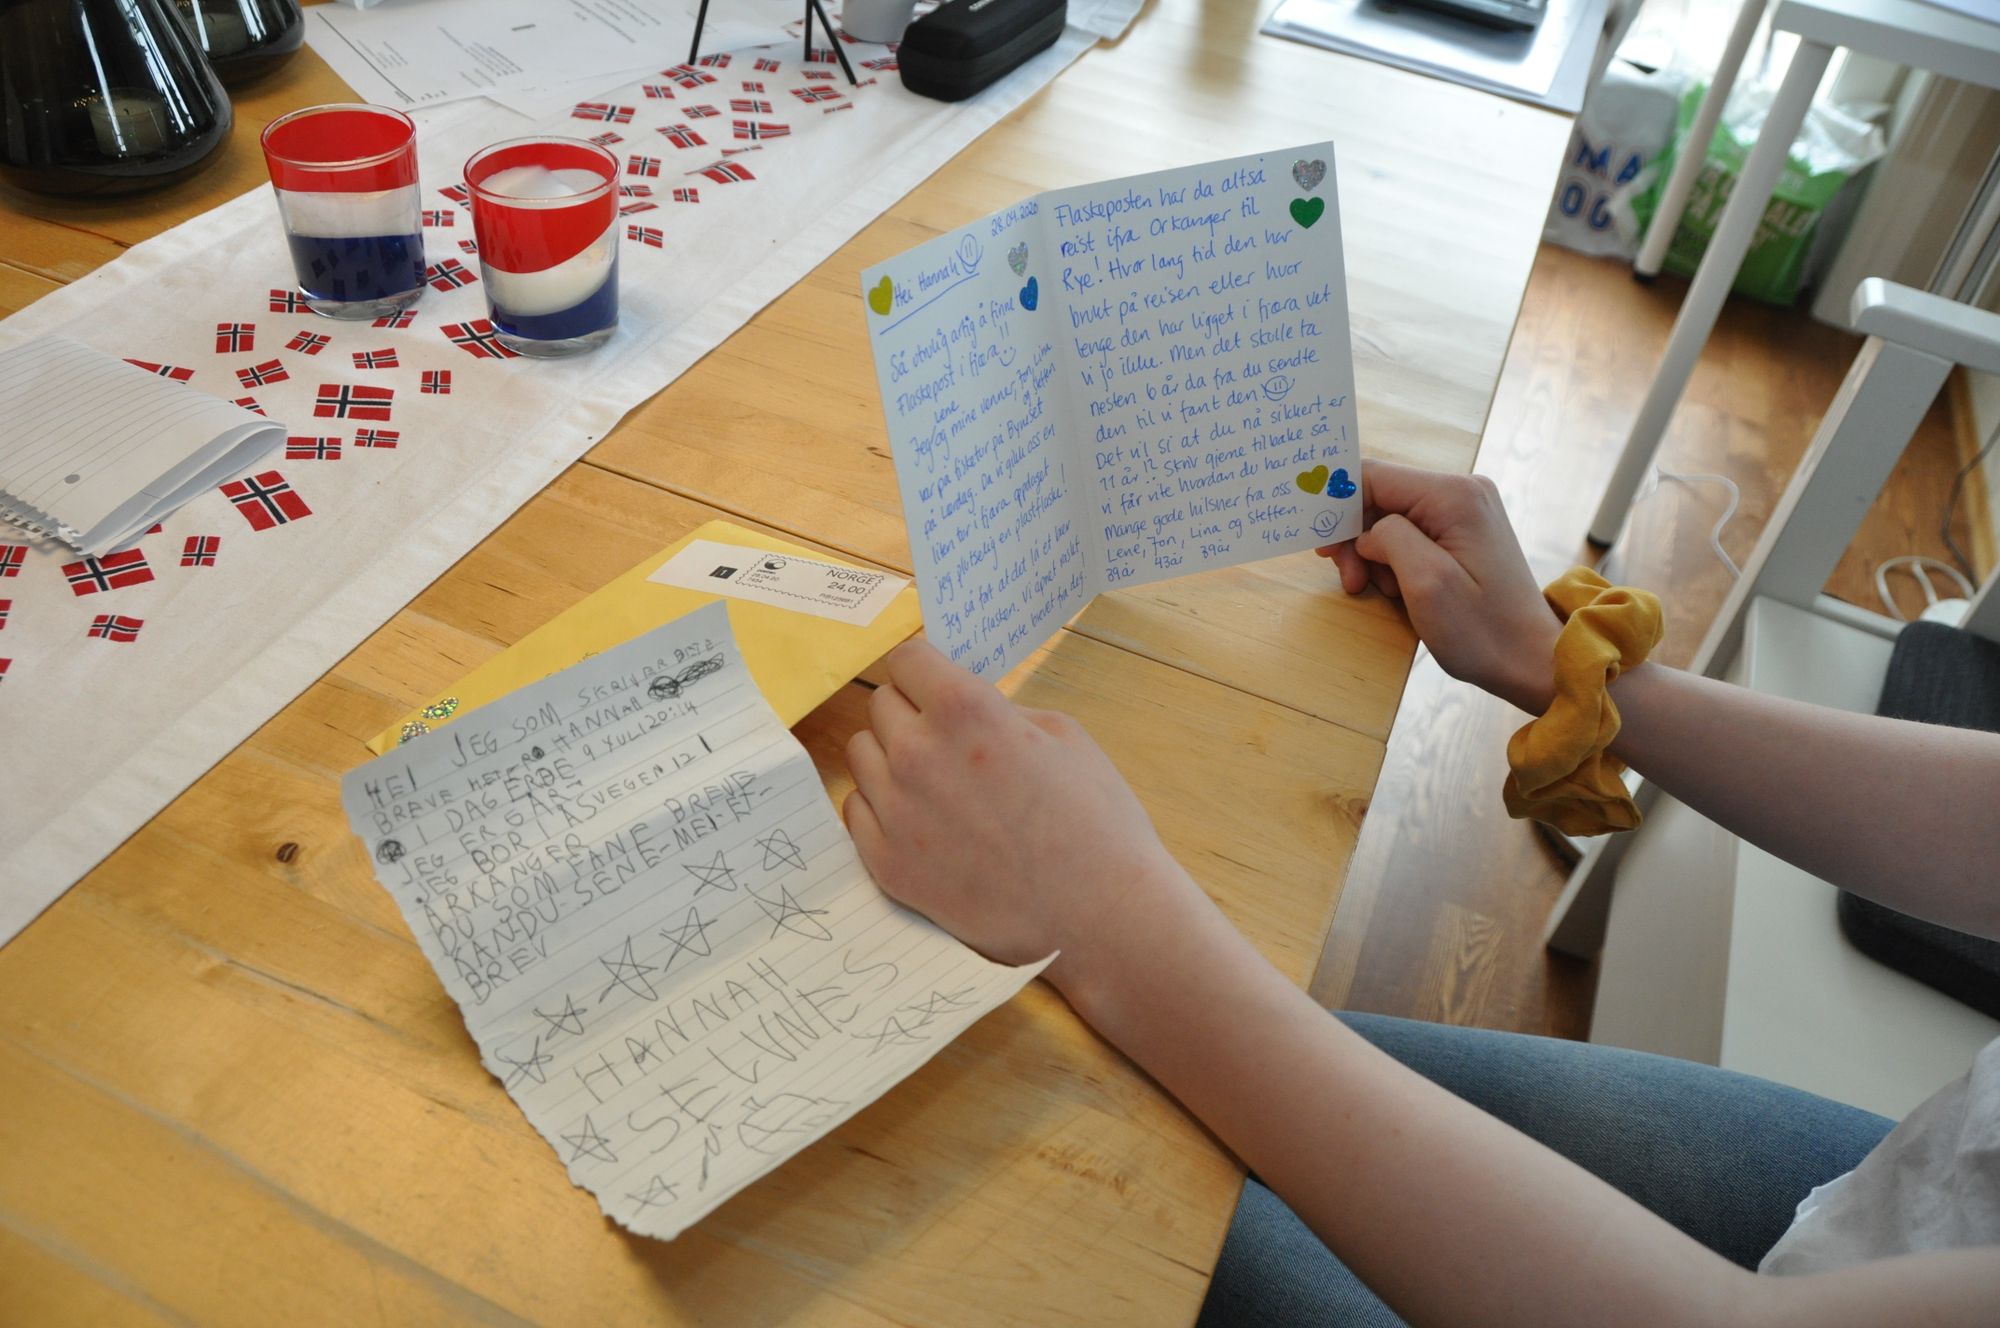 28.04.2020
Hei Hannah
Så utrolig artig å finne
Flaskepost i fjæra!!
Lene
Jeg og mine venner, Jon, Lina
og Steffen
var på fisketur på Byneset
på Lørdag. Da vi gikk oss en
liten tur i fjæra oppdaget
jeg plutselig en plastflaske!
Jeg så fort at det lå et brev
inne i flasken. Vi åpnet raskt
og leste brevet fra deg.
Flaskeposten har da altså
reist ifra Orkanger til
Rye! Hvor lang tid den har
brukt på reisen eller hvor
lenge den har ligget i fjæra vet
vi jo ikke. Men det skulle ta
nesten 6 år da fra du sendte
den til vi fant den.
Det vil si at du nå sikkert er
11 år!? Skriv gjerne tilbake så
vi får vite hvordan du har det nå!
Mange gode hilsner fra oss
Lene, Jon, Lina og Steffen.
39år 43år 39år 46år
1
posten
28.04.20
7404
NORGE
24,00
HEI JEG SOM SKRIVER DETE
BREVE HETER HANNAH
I DAG ER DE 9 YULI 20:14
JEG ER 6 ÅR
JEG BOR I ÅSVEGEN 121
ÅRKANGER
DU SOM FANE BREVE
KAN-DU-SENE-MEI-ET-
BREV
HANNAH
SELVNES